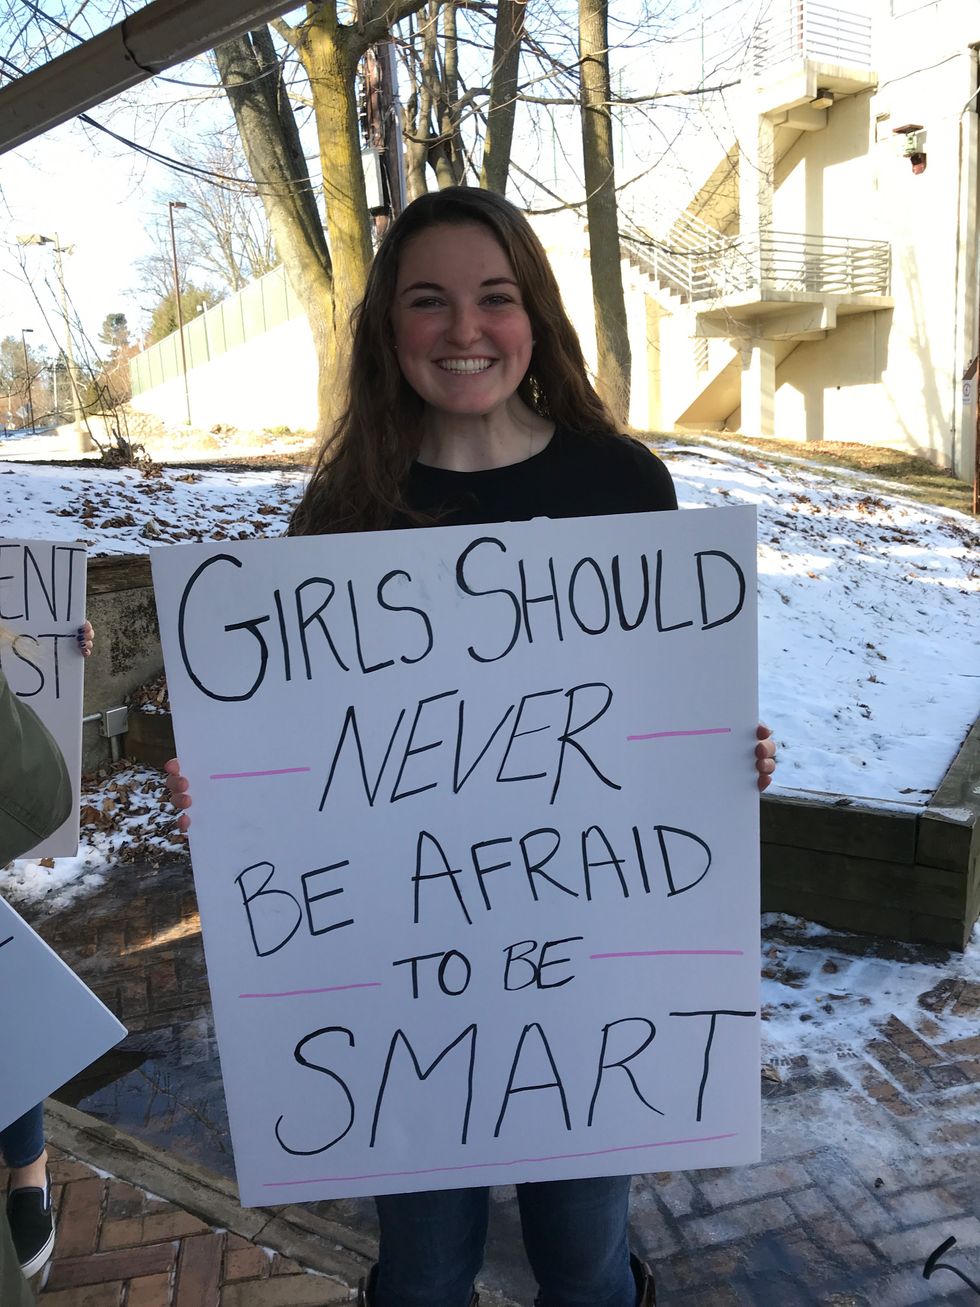 GIRLS SHOULD
NEVER
BE AFRAID
TO BE
SMART
ENT
ST